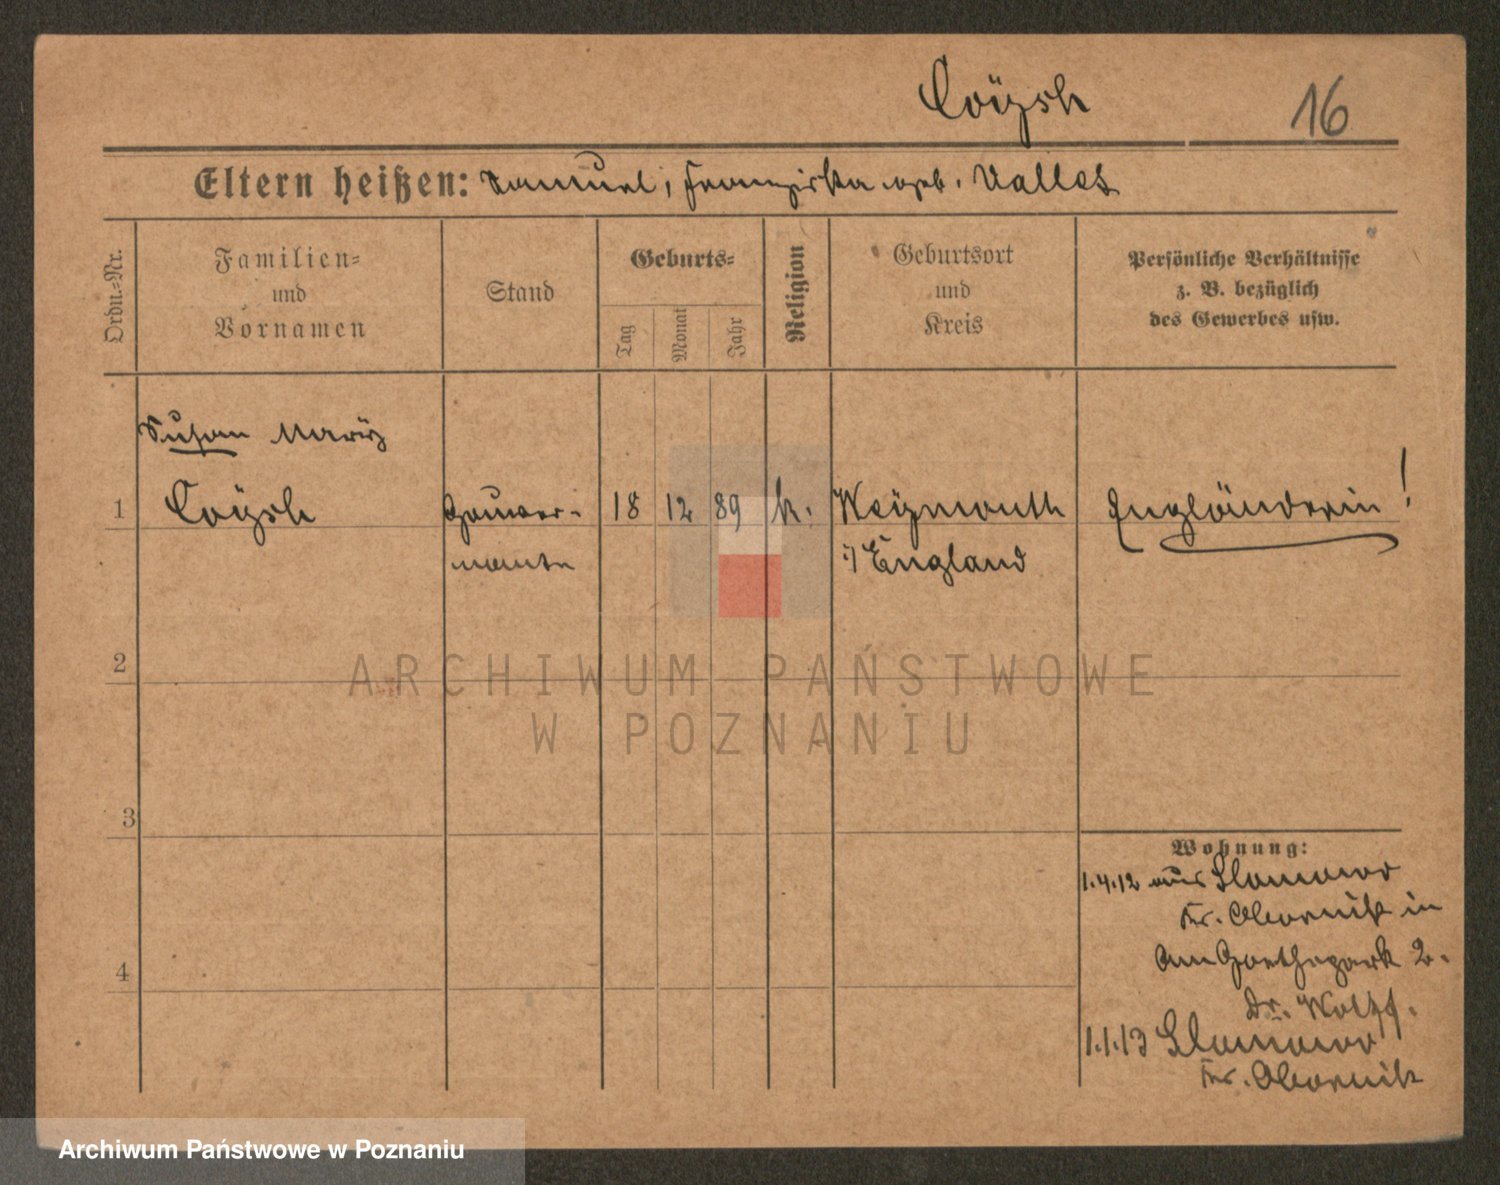 Coÿsh
16
Eltern heißen: Samuel, Franziska geb. Valles
Ordn.-Nr.
Familien- und Vornamen
Stand
Geburts-
Tag
Monat
Jahr
Religion
Geburtsort und Kreis
Persönliche Verhältnisse
z. B. bezüglich
des Gewerbes usw.
Susan
1 Coÿsh
Gouver-
nante
18 12 89 k.
Weijmouth
England
Engländerin!
2
ARCHIWUM PAŃSTWOWE
W POZNANIU
3
4
Wohnung:
1.4.12 aus
Kr. Obornik in
Am Goethepark 2.
Dr. Wolff.
1.1.13
Kr. Obornik
Archiwum Państwowe w Poznaniu